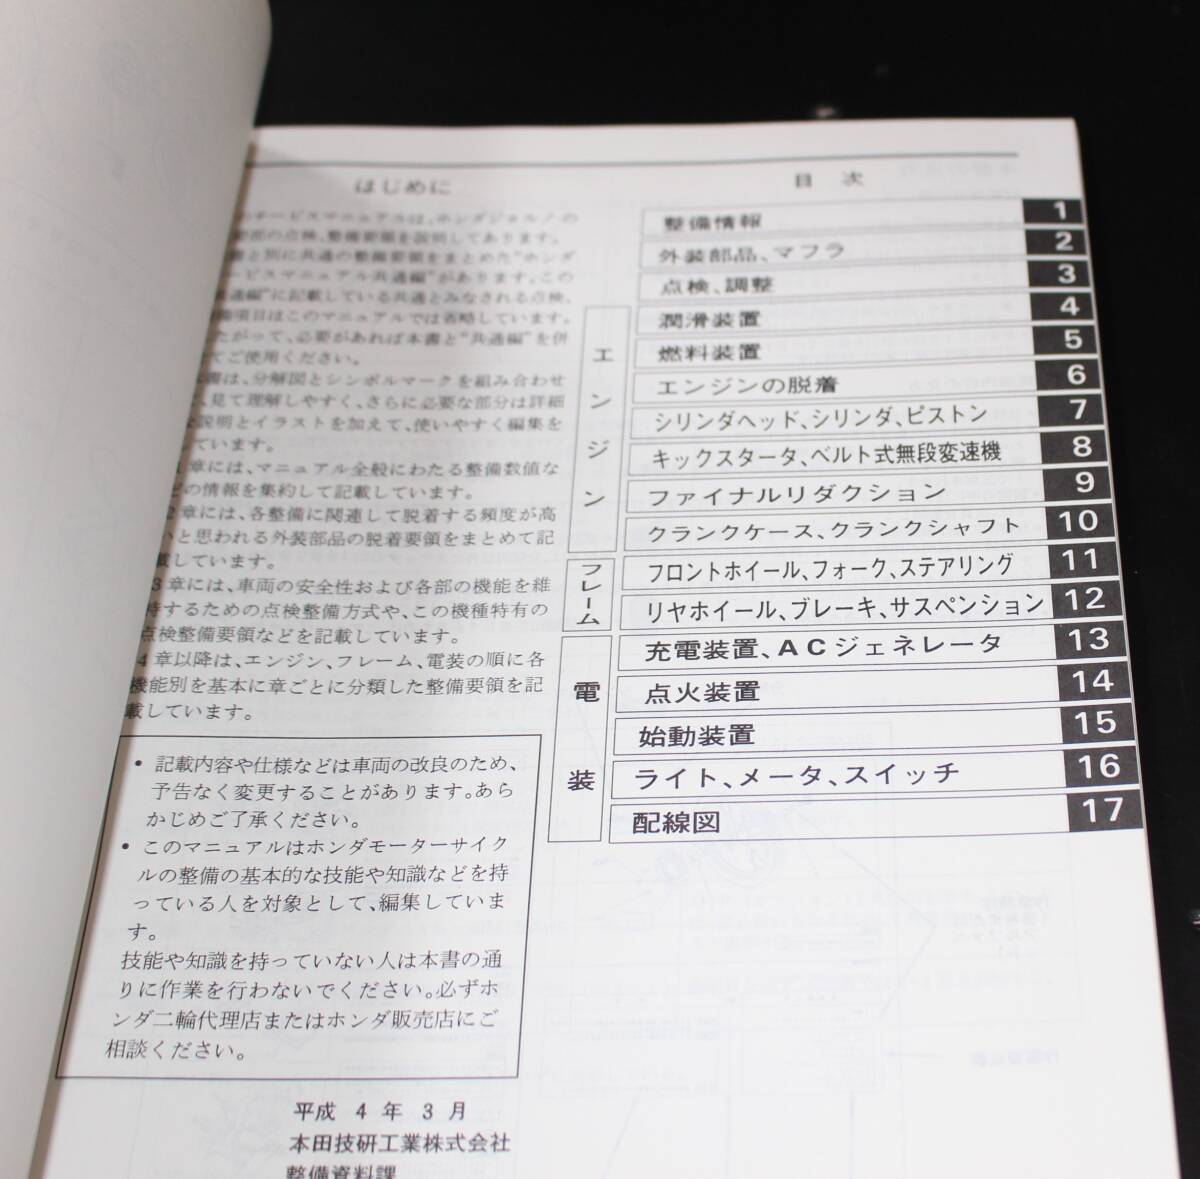 はじめに
のサービスマニュアルは、ホンダジョルノの
要部の点検、整備要領を説明してあります。
書と別に共通の整備要領をまとめた"ホンダ
ービスマニュアル共通編"があります。この
共通編"に記載している共通とみなされる点検、
備項目はこのマニュアルでは省略しています。
たがって、必要があれば本書と"共通編"を併
てご使用ください。
書は、分解図とシンボルマークを組み合わせ
、見て理解しやすく、さらに必要な部分は詳細
な説明とイラストを加えて、使いやすく編集を
ています。
1章には、マニュアル全般にわたる整備数値な
どの情報を集約して記載しています。
2章には、各整備に関連して脱着する頻度が高
いと思われる外装部品の脱着要領をまとめて記
載しています。
3章には、車両の安全性および各部の機能を維
持するための点検整備方式や、この機種特有の
点検整備要領などを記載しています。
4章以降は、エンジン、フレーム、電装の順に各
機能別を基本に章ごとに分類した整備要領を記
載しています。
• 記載内容や仕様などは車両の改良のため、
予告なく変更することがあります。あら
かじめご了承ください。
• このマニュアルはホンダモーターサイク
ルの整備の基本的な技能や知識などを持
っている人を対象として、編集していま
す。
技能や知識を持っていない人は本書の通
りに作業を行わないでください。必ずホ
ンダ二輪代理店またはホンダ販売店にご
相談ください。
平成 4 年 3 月
本田技研工業株式会社
整備資料課
目 次
整備情報 1
外装部品、マフラ 2
点検、調整 3
エンジン
潤滑装置 4
燃料装置 5
エンジンの脱着 6
シリンダヘッド、シリンダ、ピストン 7
キックスタータ、ベルト式無段変速機 8
ファイナルリダクション 9
クランクケース、クランクシャフト 10
フレーム
フロントホイール、フォーク、ステアリング 11
リヤホイール、ブレーキ、サスペンション 12
電装
充電装置、ACジェネレータ 13
点火装置 14
始動装置 15
ライト、メータ、スイッチ 16
配線図 17